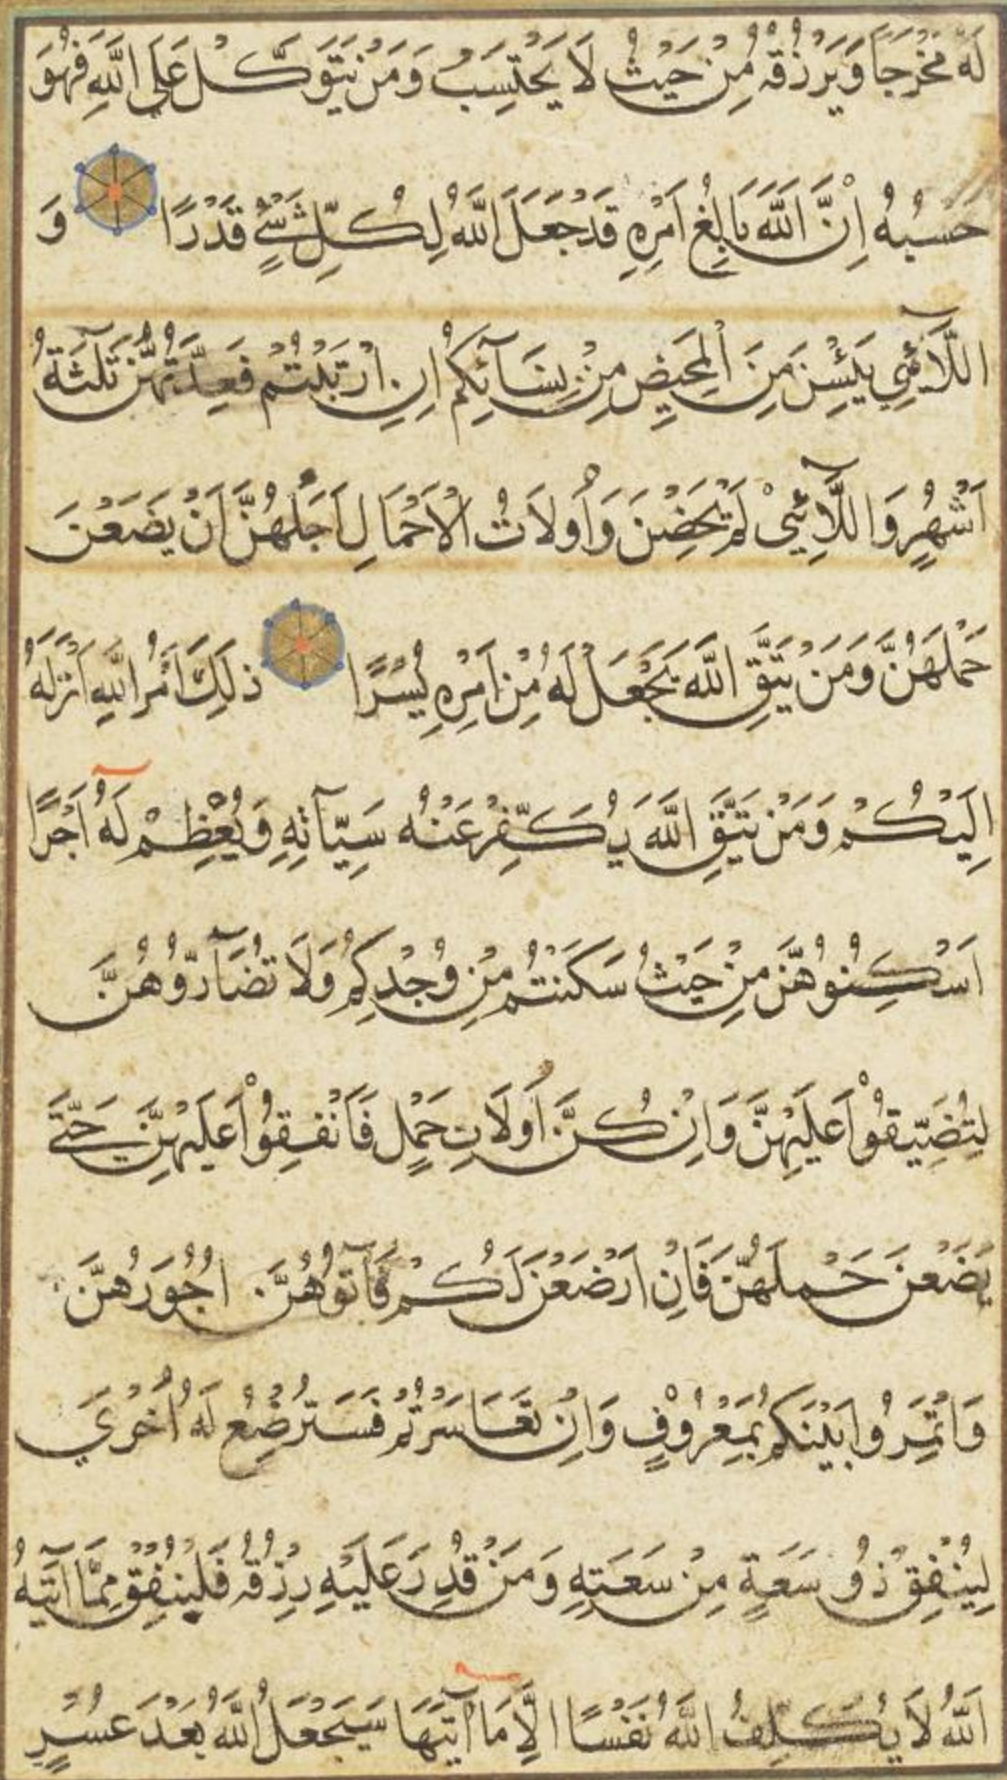 لَهُ مَخْرَجًا وَيَرْزُقْهُ مِنْ حَيْثُ لَا يَحْتَسِبُ وَمَنْ يَتَوَكَّلْ عَلَى اللَّهِ فَهُوَ
حَسْبُهُ اِنَّ اللَّهَ بَالِغُ اَمْرِهِ قَدْ جَعَلَ اللَّهُ لِكُلِّ شَيْءٍ قَدْرًا وَ
اللَّآئِي يَئِسْنَ مِنَ الْمَحِيضِ مِنْ نِسَآئِكُمْ اِنِ ارْتَبْتُمْ فَعِدَّتُهُنَّ ثَلٰثَةُ
اَشْهُرٍ وَاللَّآئِي لَمْ يَحِضْنَ وَاُولَاتُ الْاَحْمَالِ اَجَلُهُنَّ اَنْ يَضَعْنَ
حَمْلَهُنَّ وَمَنْ يَتَّقِ اللَّهَ يَجْعَلْ لَهُ مِنْ اَمْرِهِ يُسْرًا ذٰلِكَ اَمْرُ اللَّهِ اَنْزَلَهُ
اِلَيْكُمْ وَمَنْ يَتَّقِ اللَّهَ يُكَفِّرْ عَنْهُ سَيِّآتِهِ وَيُعْظِمْ لَهُ اَجْرًا
اَسْكِنُوهُنَّ مِنْ حَيْثُ سَكَنْتُمْ مِنْ وُجْدِكُمْ وَلَا تُضَآرُّوهُنَّ
لِتُضَيِّقُوْا عَلَيْهِنَّ وَاِنْ كُنَّ اُولَاتِ حَمْلٍ فَاَنْفِقُوْا عَلَيْهِنَّ حَتَّى
يَضَعْنَ حَمْلَهُنَّ فَاِنْ اَرْضَعْنَ لَكُمْ فَآتُوْهُنَّ اُجُورَهُنَّ
وَاْتَمِرُوا بَيْنَكُمْ بِمَعْرُوْفٍ وَاِنْ تَعَاسَرْتُمْ فَسَتُرْضِعُ لَهُ اُخْرٰي
لِيُنْفِقْ ذُو سَعَةٍ مِنْ سَعَتِهِ وَمَنْ قُدِرَ عَلَيْهِ رِزْقُهُ فَلْيُنْفِقْ مِمَّا آتٰيهُ
اللَّهُ لَا يُكَلِّفُ اللَّهُ نَفْسًا اِلَّا مَا آتٰيهَا سَيَجْعَلُ اللَّهُ بَعْدَ عُسْرٍ